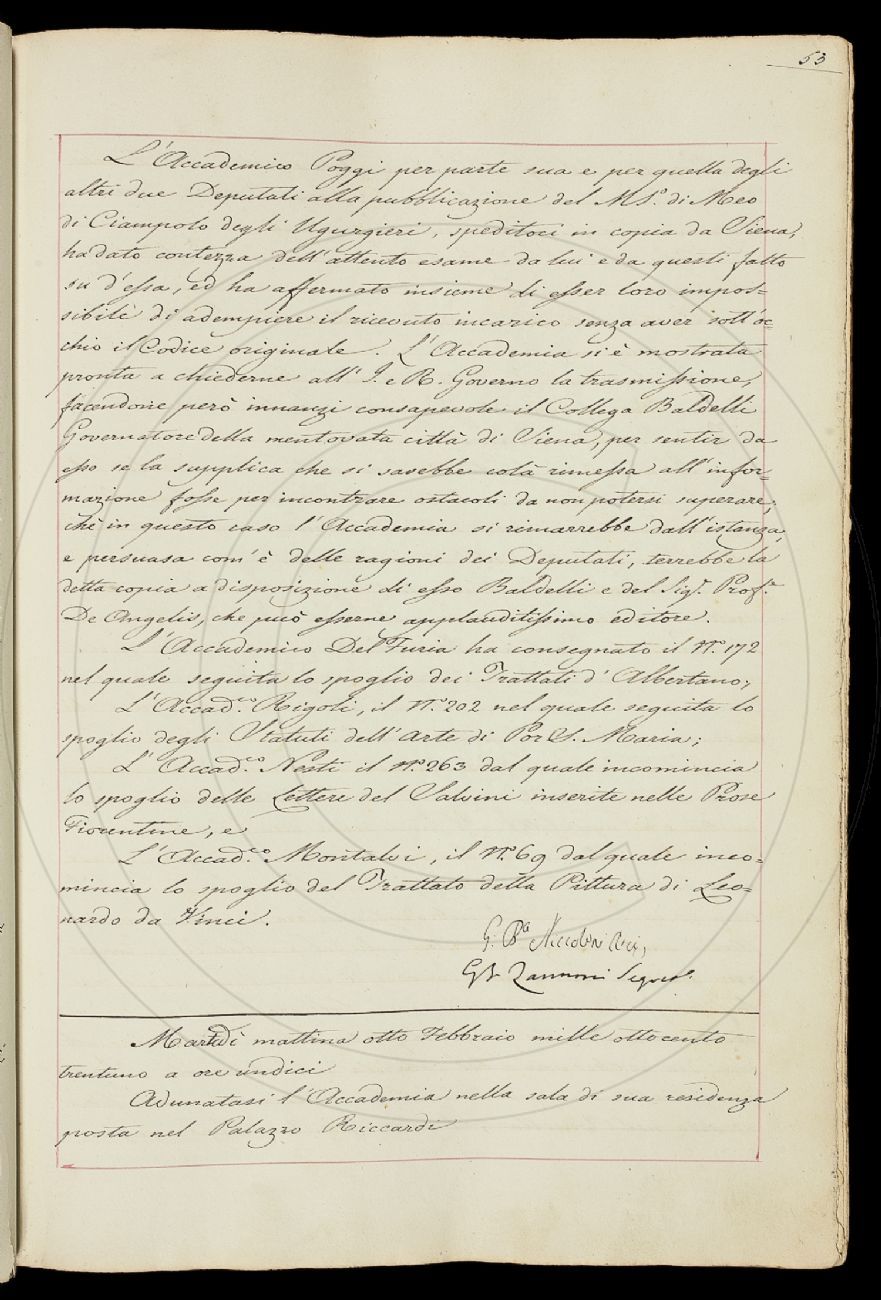 53
L'Accademico Poggi per parte sua e per quella degli
altri due Deputati alla pubblicazione del MS.° di Meo
di Ciampolo degli Ugurgieri, speditoci in copia da Siena,
ha dato contezza dell'attento esame da lui e da questi fatto
su d'essa, ed ha affermato insieme di esser loro impos=
sibile di adempiere il ricevuto incarico senza aver sott'oc=
chio il Codice originale. L'Accademia si è mostrata
pronta a chiederne all'I. e R. Governo la trasmissione,
facendone però innanzi consapevole il Collega Baldelli
Governatore della mentovata città di Siena, per sentir da
esso se la supplica che si sarebbe colà rimessa all'infor=
mazione fosse per incontrare ostacoli da non potersi superare;
chè in questo caso l'Accademia si rimarrebbe dall'istanza,
e persuasa com'è delle ragioni dei Deputati, terrebbe la
detta copia a disposizione di esso Baldelli e del Sig.r Prof.e
De Angelis, che può esserne applauditissimo editore.
L'Accademico Del Furia ha consegnato il N.° 172
nel quale seguita lo spoglio dei Trattati d'Albertano;
L'Accad.co Rigoli, il N.° 202 nel quale seguita lo
spoglio degli Statuti dell'Arte di Por S. Maria;
L'Accad.co Nesti il N.° 263 dal quale incomincia
lo spoglio delle Lettere del Salvini inserite nelle Prose
Fiorentine, e
L'Accad.co Montalvi, il N.° 69 dal quale inco=
mincia lo spoglio del Trattato della Pittura di Leo=
nardo da Vinci.
G. Ba Niccolini
GB Zannoni Segret.°
Martedì mattina otto Febbraio mille ottocento
trentuno a ore undici
Adunatasi l'Accademia nella sala di sua residenza
posta nel Palazzo Riccardi